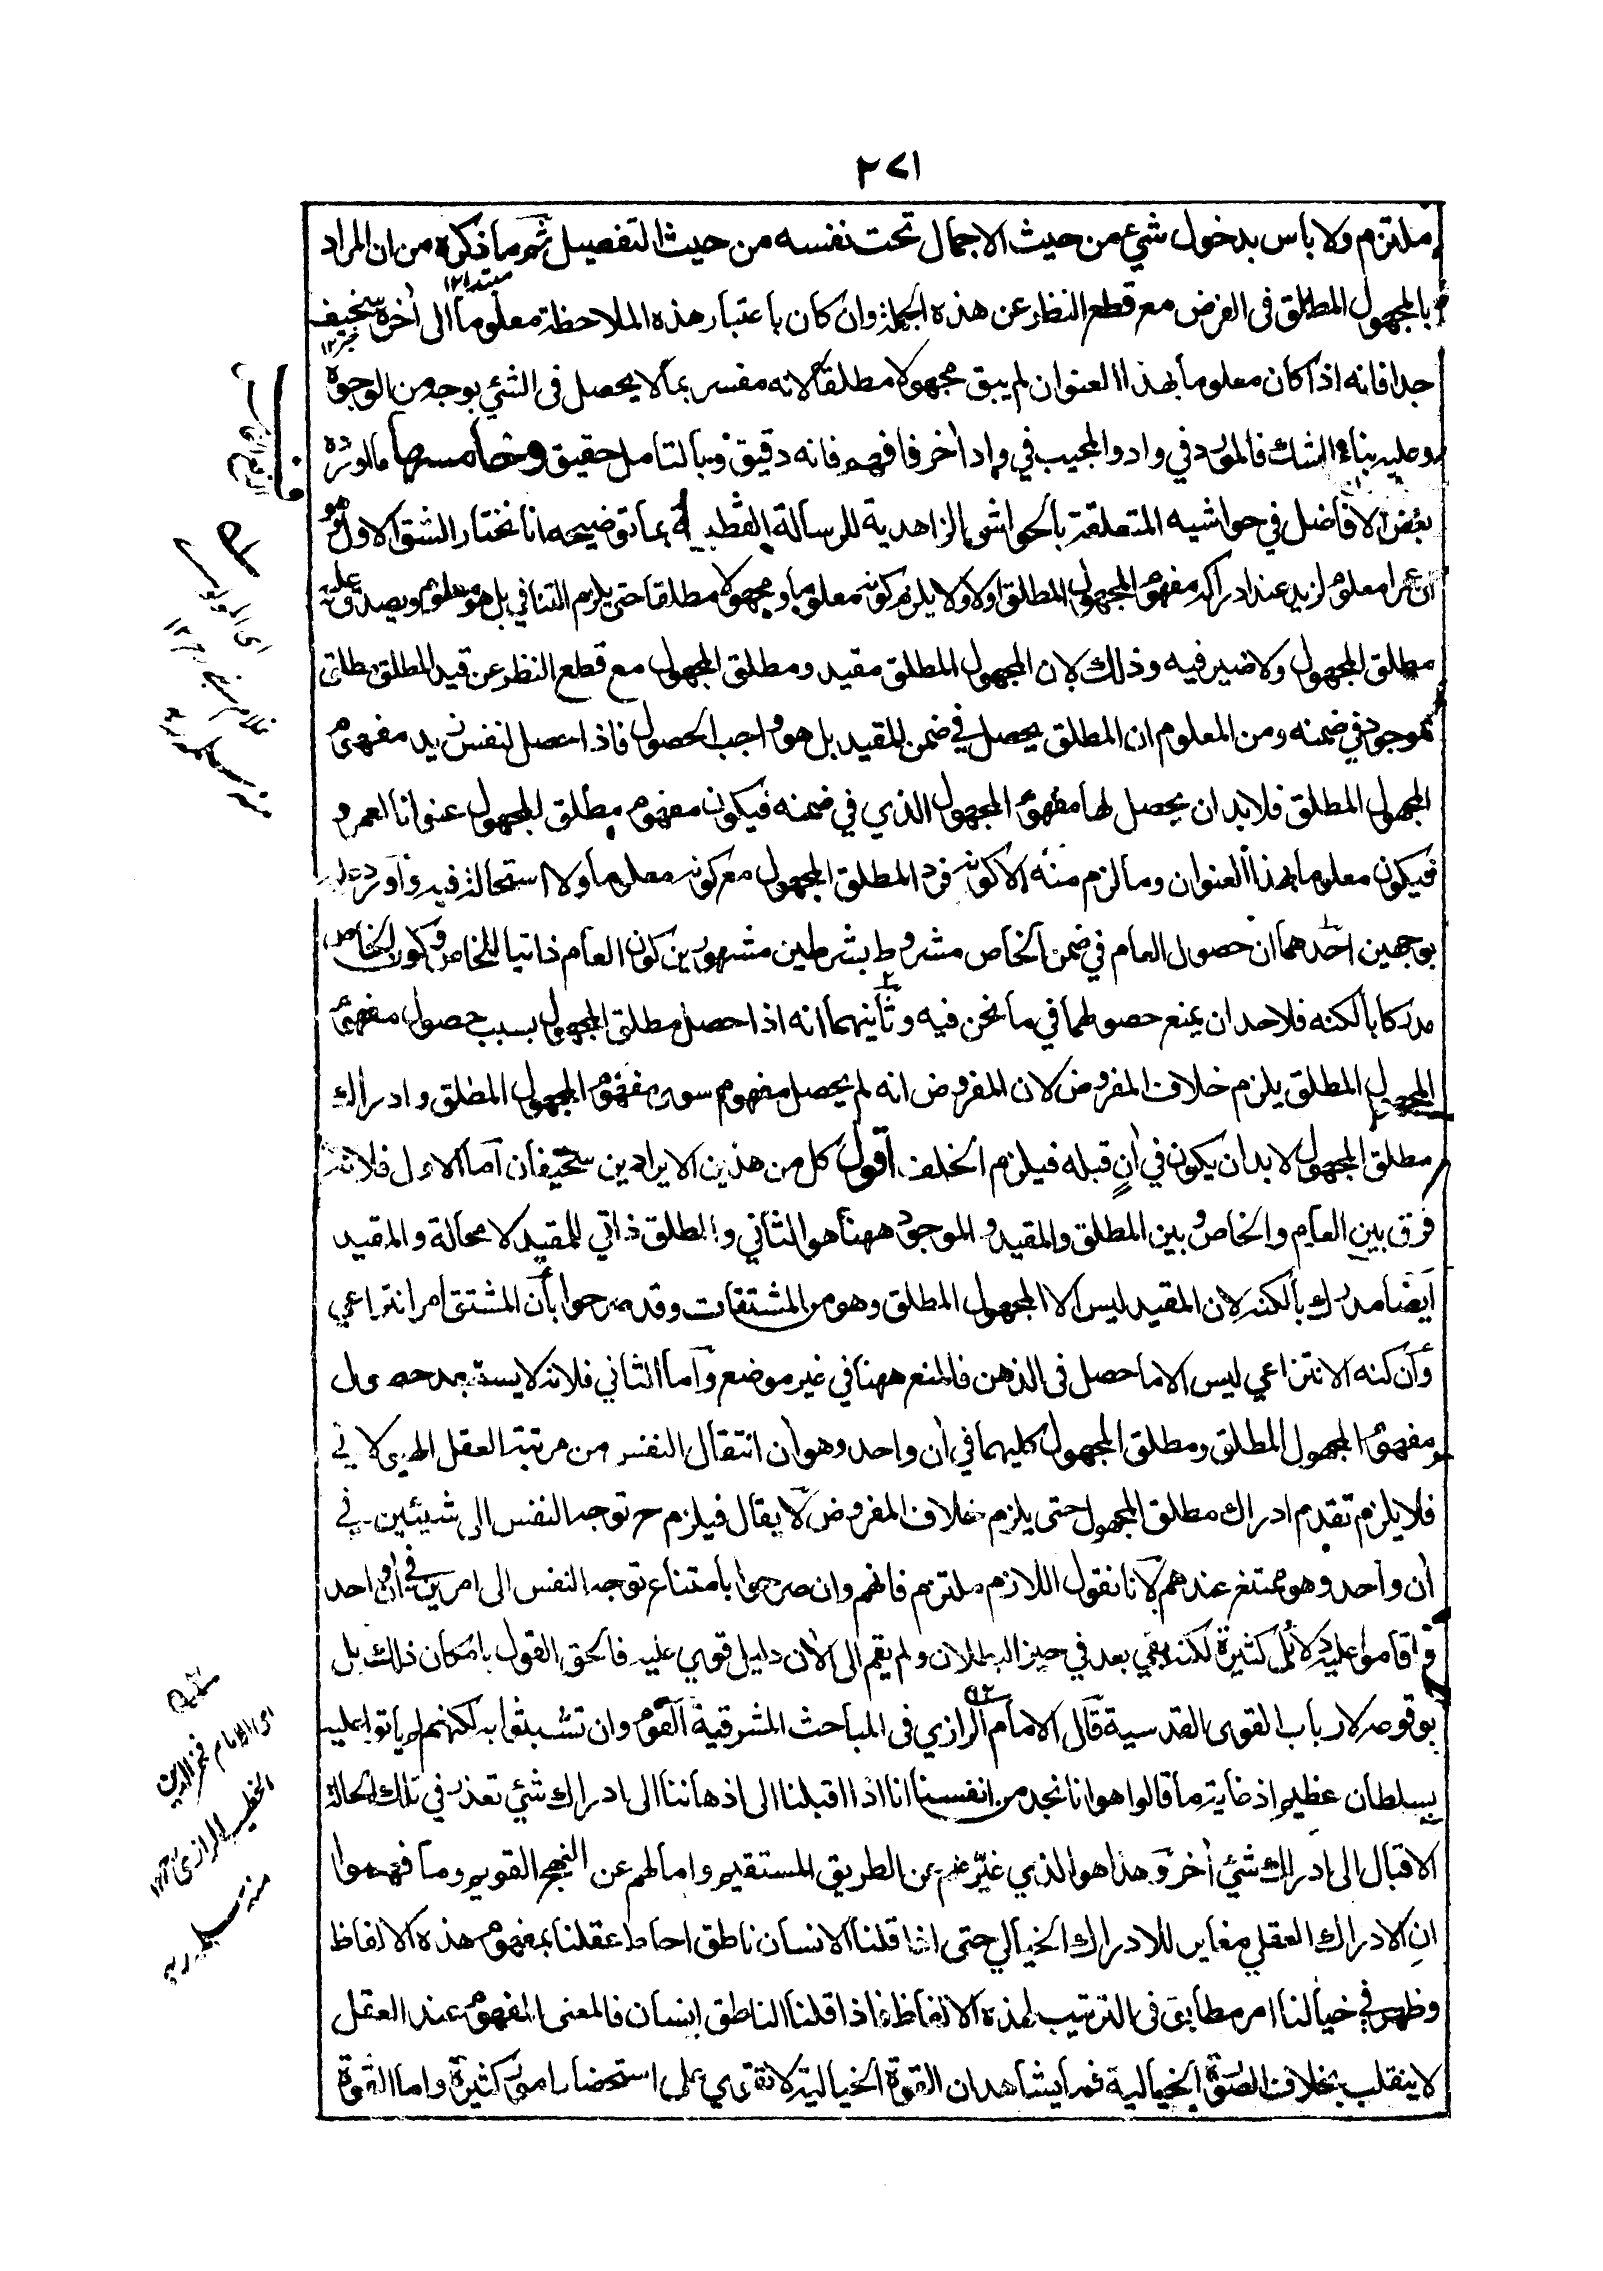 ٢٧١
ملتزم ولا باس بدخول شيء من حيث الاجمال تحت نفسه من حيث التفصيل ثم ما ذكره من ان المراد
مبتدا ١٢
بالمجهول المطلق فى الفرض مع قطع النظر عن هذه الجملة وان كان باعتبار هذه الملاحظة معلوما الى أخره سخيف
خبر ١٢
جدا فانه اذا كان معلوما بهذا العنوان لم يبق مجهولا مطلقا لانه مفسر بما لا يحصل فى الشئ بوجه من الوجوه
وعليه بناء الشك فالمورد في واد والمجيب في واد أخر فافهم فانه دقيق وبالتامل حقيق وخامسها ما اورده
بعض الافاضل في حواشيه المتعلقة بالحواشى الزاهدية للرسالة القطبية بما توضيحه انا نختار الشق الاول وهو
ان عمرا معلوم لزيد عند ادراكه مفهوم المجهول المطلق اولا ولا يلزم كونه معلوما ومجهولا مطلقا حتى يلزم التنافي بل هو معلوم ويصدق عليه
مطلق المجهول ولا ضير فيه وذلك لان المجهول المطلق مقيد ومطلق المجهول مع قطع النظر عن قيد المطلق مطلق
موجود في ضمنه ومن المعلوم ان المطلق يحصل في ضمن المقيد بل هو واجب الحصول فاذا حصل لنفس زيد مفهوم
المجهول المطلق فلا بد ان يحصل لها مفهوم المجهول الذي في ضمنه فيكون مفهوم مطلق المجهول عنوانا لعمرو
فيكون معلوما بهذا العنوان وما لزم منه الا كونه فرد المطلق المجهول مع كونه معلوما ولا استحالة فيه وأورد عليه
بوجهين احدهما ان حصول العام في ضمن الخاص مشروط بشرطين مشهورين كون العام ذاتيا للخاص وكون الخاص
مدركا بالكنه فلاحد ان يمنع حصولهما في ما نحن فيه وثانيهما انه اذا حصل مطلق المجهول بسبب حصول مفهوم
المجهول المطلق يلزم خلاف المفروض لان المفروض انه لم يحصل مفهوم سوى مفهوم المجهول المطلق وادراك
مطلق المجهول لا بد ان يكون في أن قبله فيلزم الخلف اقول كل من هذين الايرادين سخيفان اما الاول فلانه
فرق بين العام والخاص وبين المطلق والمقيد والموجود ههنا هو الثاني والمطلق ذاتي للمقيد لا محالة والمقيد
ايضا مدرك بالكنه لان المقيد ليس الا المجهول المطلق وهو من المشتقات وقد صرحوا بأن المشتق امر انتزاعي
وأن كنه الانتزاعي ليس الا ما حصل فى الذهن فالمنع ههنا في غير موضع وأما الثاني فلانه لا يستبعد حصول
مفهوم المجهول المطلق ومطلق المجهول كليهما في أن واحد وهو أن انتقال النفس من مرتبة العقل الهيولانى
فلا يلزم تقدم ادراك مطلق المجهول حتى يلزم خلاف المفروض لا يقال فيلزم ح توجه النفس الى شيئين في
أن واحد وهو ممتنع عندهم لانا نقول اللازم ملتزم فانهم وان صرحوا بامتناع توجه النفس الى امرين في أن واحد
واقاموا عليه دلائل كثيرة لكنه بقي بعد في حيز البطلان ولم يقم الى الأن دليل قوي عليه فالحق القول بامكان ذلك بل
بوقوعه لارباب القوى القدسية قال الامام الرازي فى المباحث المشرقية القوم وان تشبثوا به لكنهم لم ياتوا عليه
بسلطان عظيم اذ غاية ما قالوا هو انا نجد من انفسنا انا اذا اقبلنا الى اذهاننا الى ادراك شئ تعذر في تلك الحالة
الاقبال الى ادراك شئ أخر وهذا هو الذي غيرهم عن الطريق المستقيم وامالهم عن النهج القويم وما فهموا
ان الادراك العقلي مغاير للادراك الخيالي حتى اذا قلنا الانسان ناطق احاط عقلنا بمفهوم هذه الالفاظ
وظهر في خيالنا امر مطابق فى الترتيب لهذه الالفاظ فاذا قلنا الناطق انسان فالمعنى المفهوم عند العقل
لا ينقلب بخلاف الصورة الخيالية فما يشاهد ان القوة الخيالية لا تقوي على استحضار امور كثيرة واما القوة
اى الامام فخر الدين
الخطيب الرازي
منه